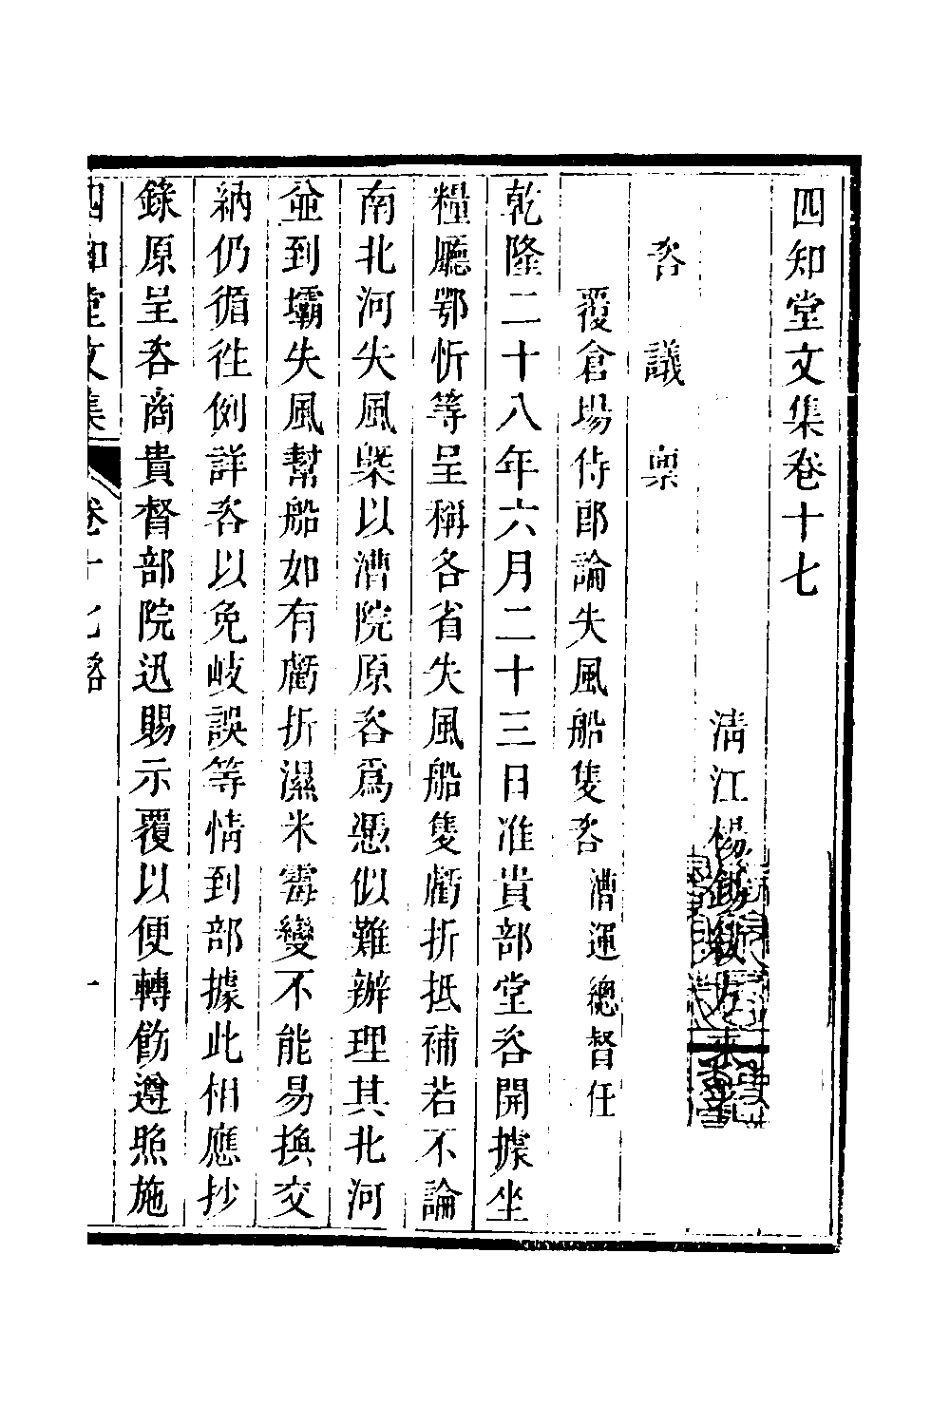 四知堂文集卷十七
清江楊錫紱方來
咨議稟
覆倉場侍郎論失風船隻咨漕運總督任
乾隆二十八年六月二十三日准貴部堂咨開據坐
糧廳鄂忻等呈稱各省失風船隻虧折抵補若不論
南北河失風槩以漕院原咨爲憑似難辦理其北河
並到壩失風幫船如有虧折濕米霉變不能易換交
納仍循徃例詳咨以免岐誤等情到部據此相應抄
錄原呈咨商貴督部院迅賜示覆以便轉飭遵照施
四知堂文集 卷十七 一